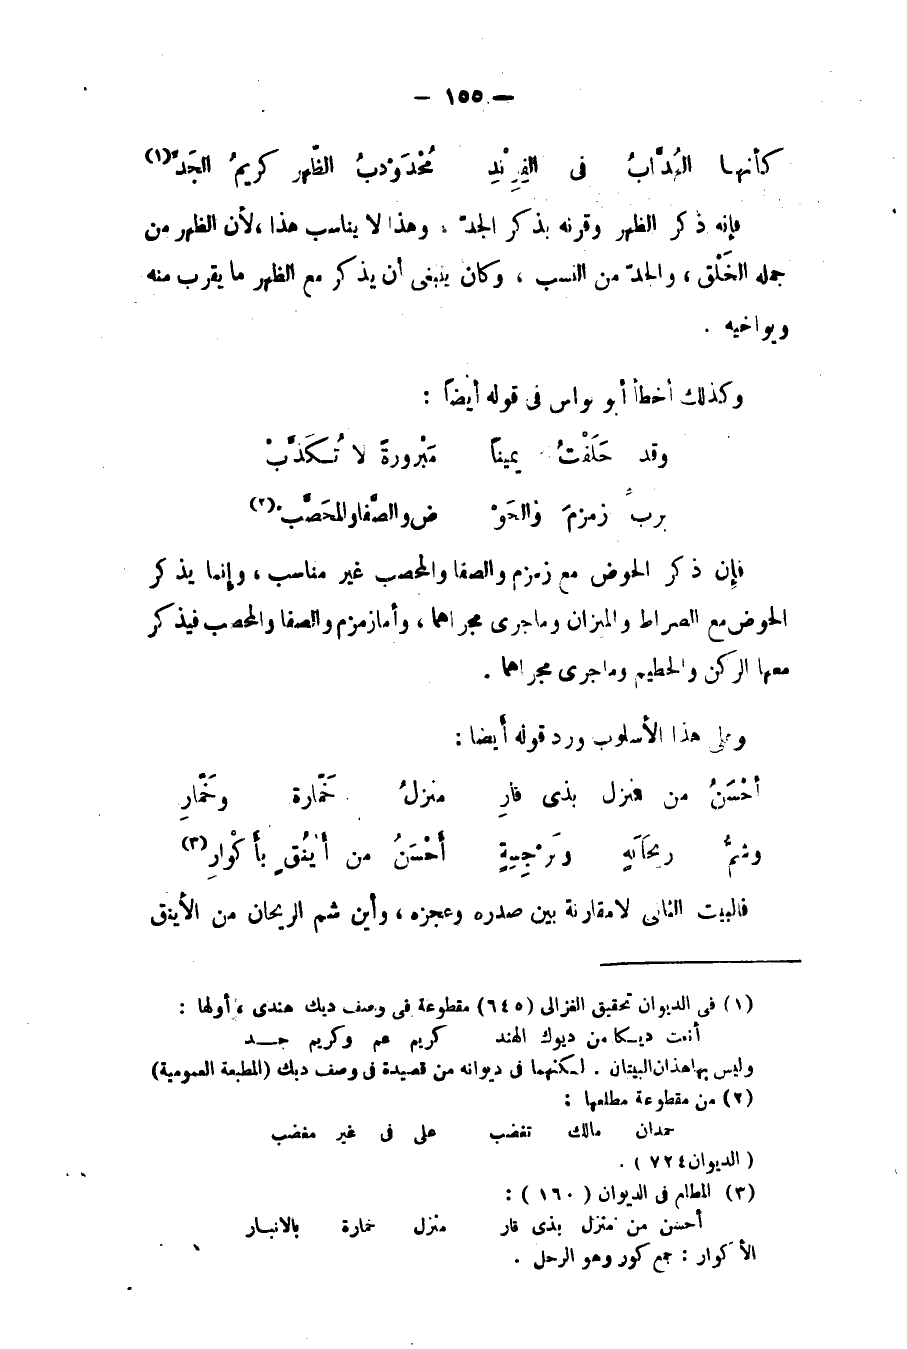 — ١٥٥ —
كأنها الهُدَّابُ فى الفِرِنْدِ مُحْدَوْدبُ الظَّهرِ كريمُ الجَدِّ(١)
فإنه ذكر الظهر وقرنه بذكر الجدّ ، وهذا لا يناسب هذا ،لأن الظهر من
جملة الخَلْق ، والجدّ من النسب ، وكان ينبغى أن يذكر مع الظهر ما يقرب منه
ويواخيه .
وكذلك أخطأ أبو نواس فى قوله أيضاً :
وقد حَلَفْتُ يميناً مَبْرورةً لا تُكَذَّبْ
بربِّ زمزمَ والحَوْ ضِ والصَّفا والمحَصَّبْ(٢)
فإن ذكر الحوض مع زمزم والصفا والمحصب غير مناسب ، وإنما يذكر
الحوض مع الصراط والميزان وماجرى مجراهما ، وأما زمزم والصفا والمحصب فيذكر
معها الركن والحطيم وماجرى مجراهما .
وعلى هذا الأسلوب ورد قوله أيضا :
أحْسَنُ من منزل بذى قارِ منزلُ خَمَّارة وخَمَّارِ
وشمُّ ريحَانَهٍ ونَرْجِسِةٍ أحْسَنُ من أيْنُقٍ بأَكْوارِ(٣)
فالبيت الثانى لا مقارنة بين صدره وعجزه ، وأين شم الريحان من الأينق
(١) فى الديوان تحقيق الغزالى (٦٤٥) مقطوعة فى وصف ديك هندى ، أولها :
أنعت ديكا من ديوك الهند كريم عم وكريم جــد
وليس بها هذان البيتان . لكنهما فى ديوانه من قصيدة فى وصف ديك (المطبعة العمومية)
(٢) من مقطوعة مطلعها :
حمدان مالك تغضب على فى غير مغضب
( الديوان ٧٢٤ ) .
(٣) المطلع فى الديوان ( ١٦٠ ) :
أحسن من منزل بذى قار منزل خمارة بالانبــار
الأكوار : جمع كور وهو الرحل .